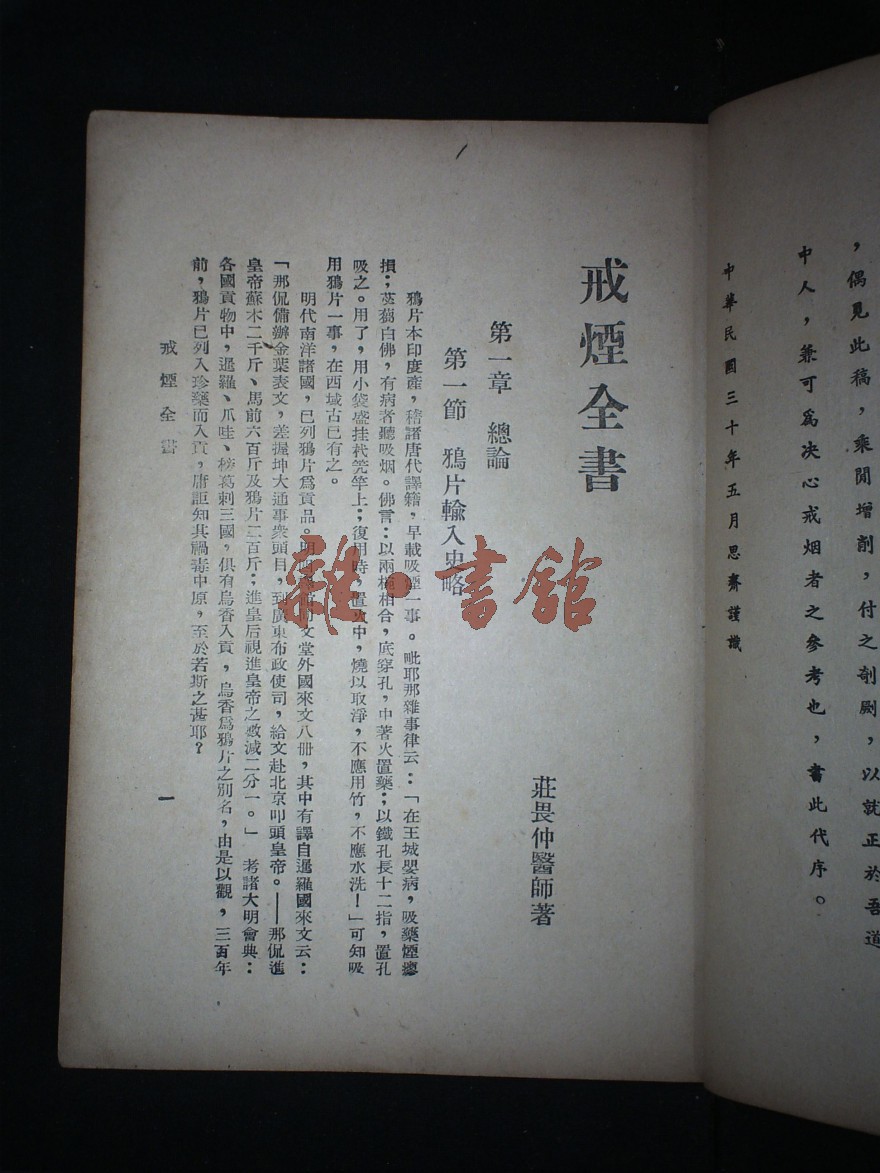 ，偶見此稿，乘閒增削，付之剞劂，以就正於吾道
中人，兼可為決心戒烟者之參考也，書此代序。
中華民國三十年五月思齋謹識
戒煙全書
莊畏仲醫師著
第一章 總論
第一節 鴉片輸入史略
鴉片本印度產，稽諸唐代譯籍，早載吸煙一事。毗耶那雜事律云：「在王城嬰病，吸藥煙瘳
損；苾蒭白佛，有病者聽吸烟。佛言：以兩椀相合，底穿孔，中著火置藥；以鐵孔長十二指，置孔
吸之。用了，用小袋盛挂杙笐竿上；復用時，置火中，燒以取淨，不應用竹，不應水洗！」可知吸
用鴉片一事，在西域古已有之。
明代南洋諸國，已列鴉片為貢品。明 文堂外國來文八冊，其中有譯自暹羅國來文云：
「那侃備辦金葉表文，差握坤大通事衆頭目，到廣東布政使司，給文赴北京叩頭皇帝。——那侃進
皇帝蘇木二千斤、馬前六百斤及鴉片二百斤；進皇后視進皇帝之數減二分一。」 考諸大明會典：
各國貢物中，暹羅、爪哇、榜葛剌三國，俱有烏香入貢，烏香為鴉片之別名，由是以觀，三百年
前，鴉片已列入珍藥而入貢，庸詎知其禍毒中原，至於若斯之甚耶？
戒煙全書
一
雜·書館